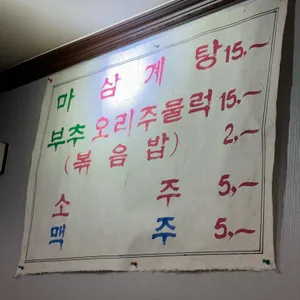 마 삼 계 탕 15,-
부추 오리주물럭 15,-
(볶음밥) 2,-
소 주 5,-
맥 주 5,-